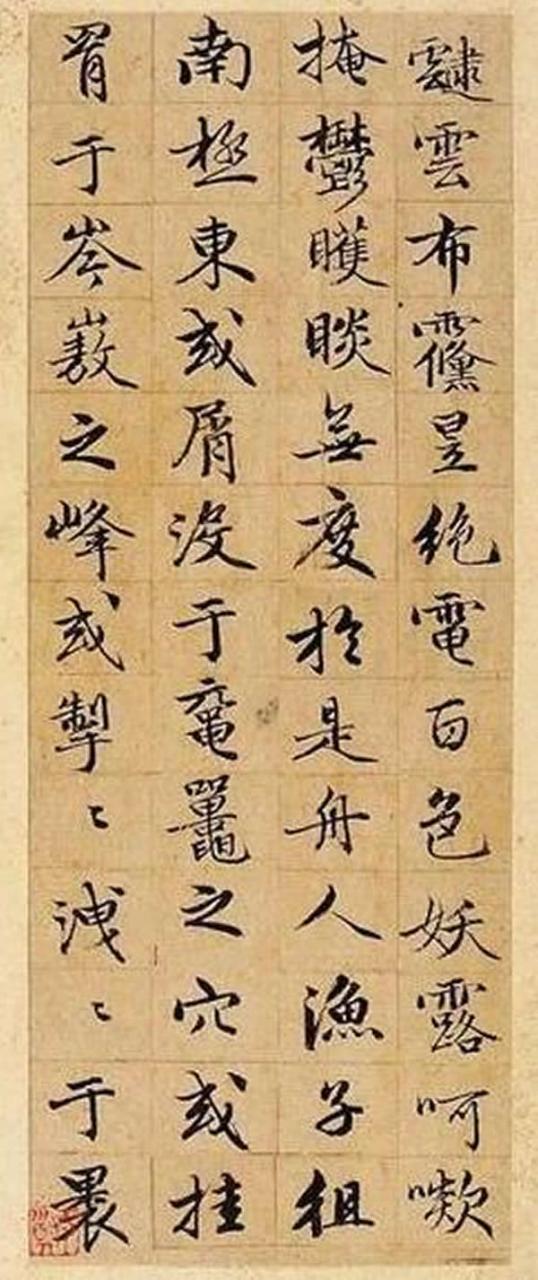 雲布昱絕電百色妖露呵
掩鬱矆睒無度於是舟人漁子徂
南極東或屑沒于黿鼉之穴或挂
罥于岑嶅之峰或掣〻洩〻于